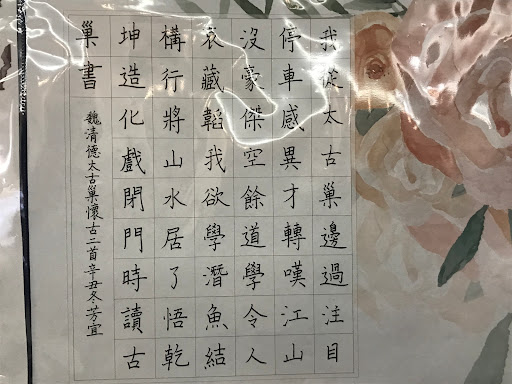 我從太古巢邊過注目
停車感異才轉嘆江山
沒豪傑空餘道學令人
哀藏韜我欲學潛魚結
構行將山水居了悟乾
坤造化戲閉門時讀古
巢書
魏清德太古巢懷古二首辛丑冬芳宜